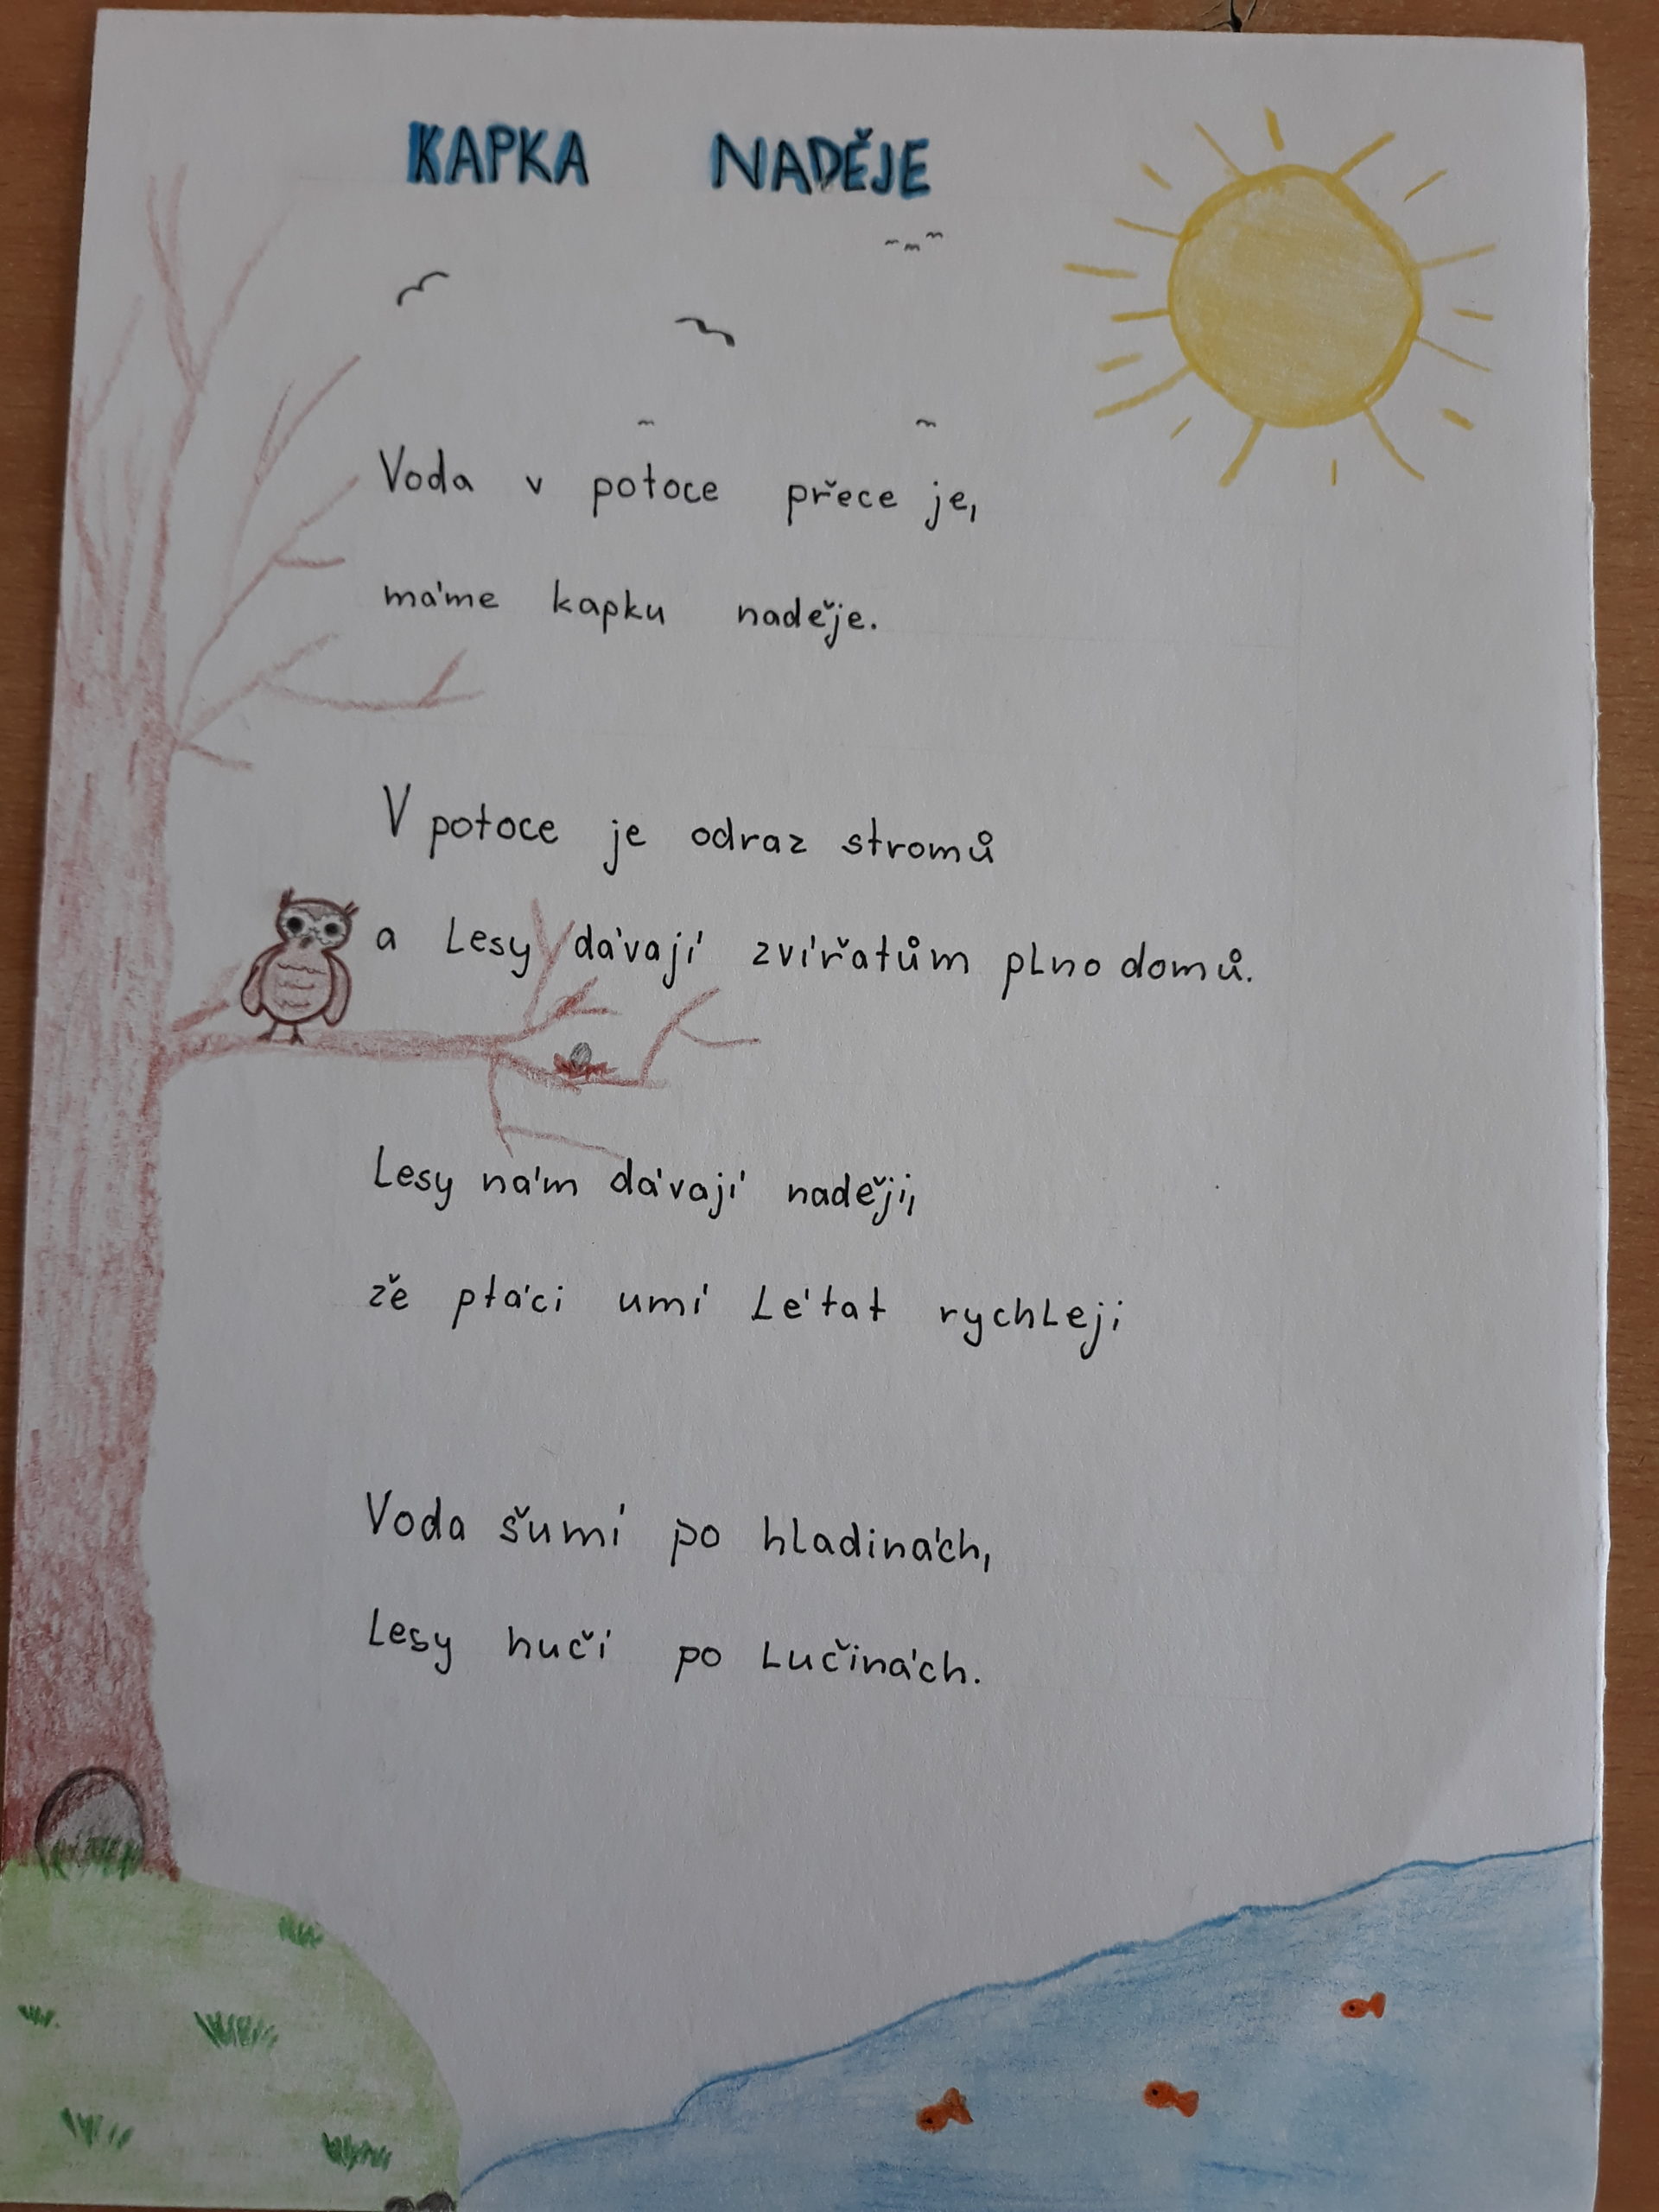 KAPKA NADĚJE
Voda v potoce přece je,
máme kapku naděje.
V potoce je odraz stromů
a lesy dávají zvířatům plno domů.
Lesy nám dávají naději,
že ptáci umí létat rychleji
Voda šumí po hladinách,
lesy hučí po lučinách.